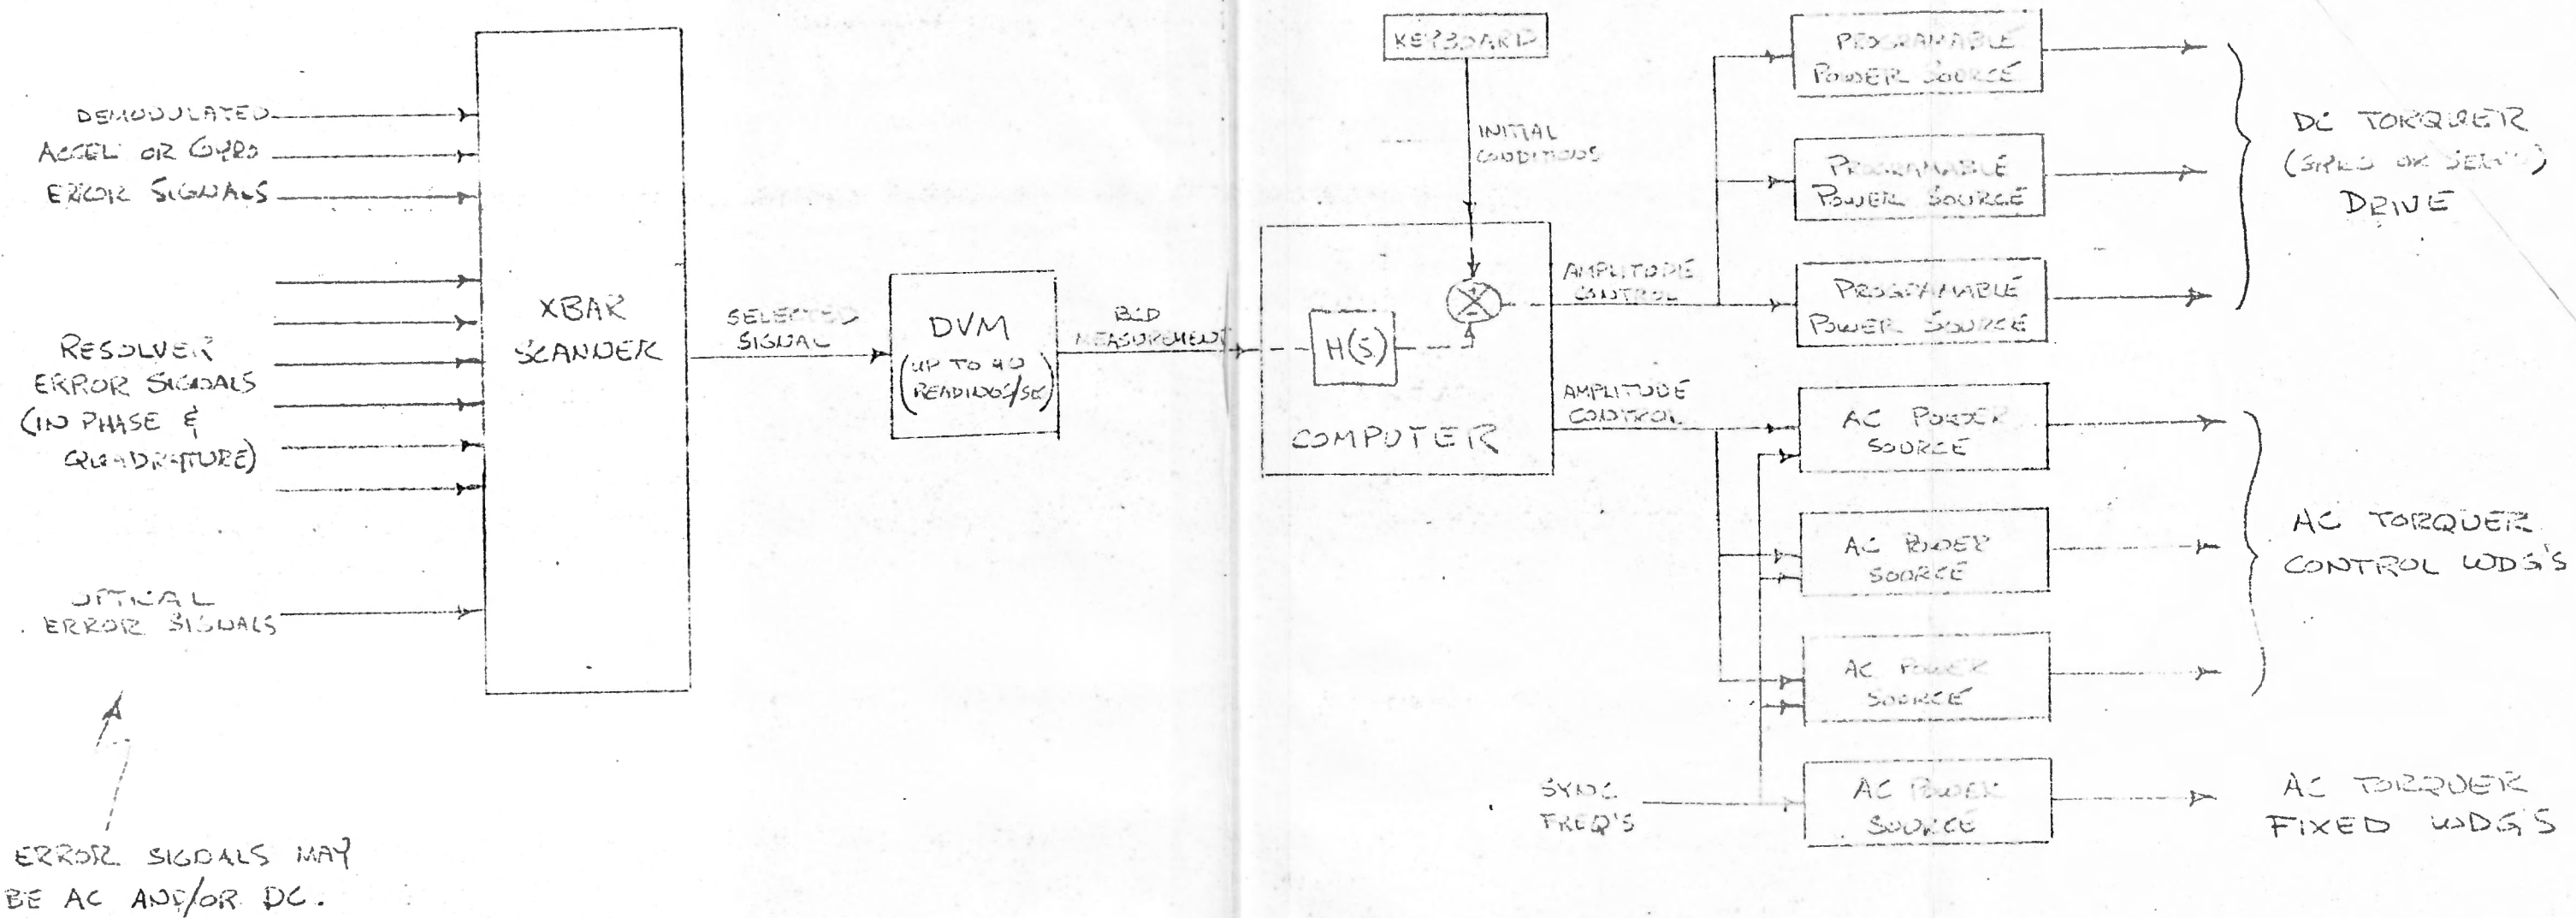 DEMODULATED
ACCEL OR GYRO
ERROR SIGNALS
RESOLVER
ERROR SIGNALS
(IN PHASE &
QUADRATURE)
OPTICAL
ERROR SIGNALS
ERROR SIGNALS MAY
BE AC AND/OR DC.
XBAR
SCANNER
SELECTED
SIGNAL
DVM
(UP TO 40
READINGS/SEC)
BCD
MEASUREMENT
KEYBOARD
INITIAL
CONDITIONS
H(S)
COMPUTER
AMPLITUDE
CONTROL
AMPLITUDE
CONTROL
SYNC
FREQ'S
PROGRAMABLE
POWER SOURCE
PROGRAMABLE
POWER SOURCE
PROGRAMABLE
POWER SOURCE
AC POWER
SOURCE
AC POWER
SOURCE
AC POWER
SOURCE
AC POWER
SOURCE
DC TORQUER
(GYRO OR SERVO)
DRIVE
AC TORQUER
CONTROL WDG'S
AC TORQUER
FIXED WDG'S